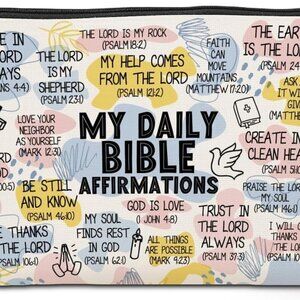 E IN
ORD
AYS
NS 4:4)
THE LORD
IS MY
SHEPHERD
(PSALM 23:1)
THE LORD IS MY ROCK
(PSALM 18:2)
MY HELP COMES
FROM THE LORD
(PSALM 121:2)
FAITH
CAN
MOVE
MOUNTAINS
(MATTHEW 17:20)
THE EAR
IS THE LOR
(PSALM 24:
LOVE YOUR
NEIGHBOR
AS YOURSELF
(MARK 12:31)
MY DAILY
BIBLE
AFFIRMATIONS
ASK
IT WI
GIVE
(MATTHEW
CREATE IN
CLEAN HEA
(PSALM 51:
BE STILL
AND KNOW
(PSALM 46:10)
GOD IS LOVE
(1 JOHN 4:8)
PRAISE THE LOR
MY SOUL
(PSALM
E THANKS
THE LORD
PSALM 106:1)
MY SOUL
FINDS REST
IN GOD
(PSALM 62:1)
ALL THINGS
ARE POSSIBLE
(MARK 9:23)
TRUST IN
THE LORD
ALWAYS
(PSALM 37:3)
I WILL
THANKS
LOR
(PSALM